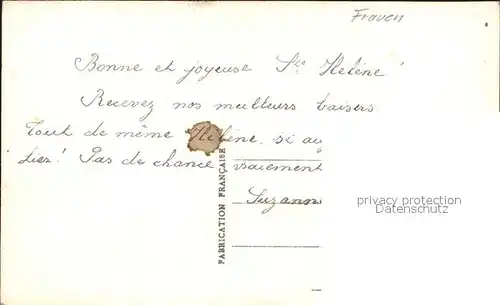 Frauen
Bonne et joyeuse Ste Hélène !
Recevez nos meilleurs baisers
Tout de même Hélène, si au
tier ! Pas de chance vraiment
Suzann
FABRICATION FRANÇAISE
privacy protection
Datenschutz